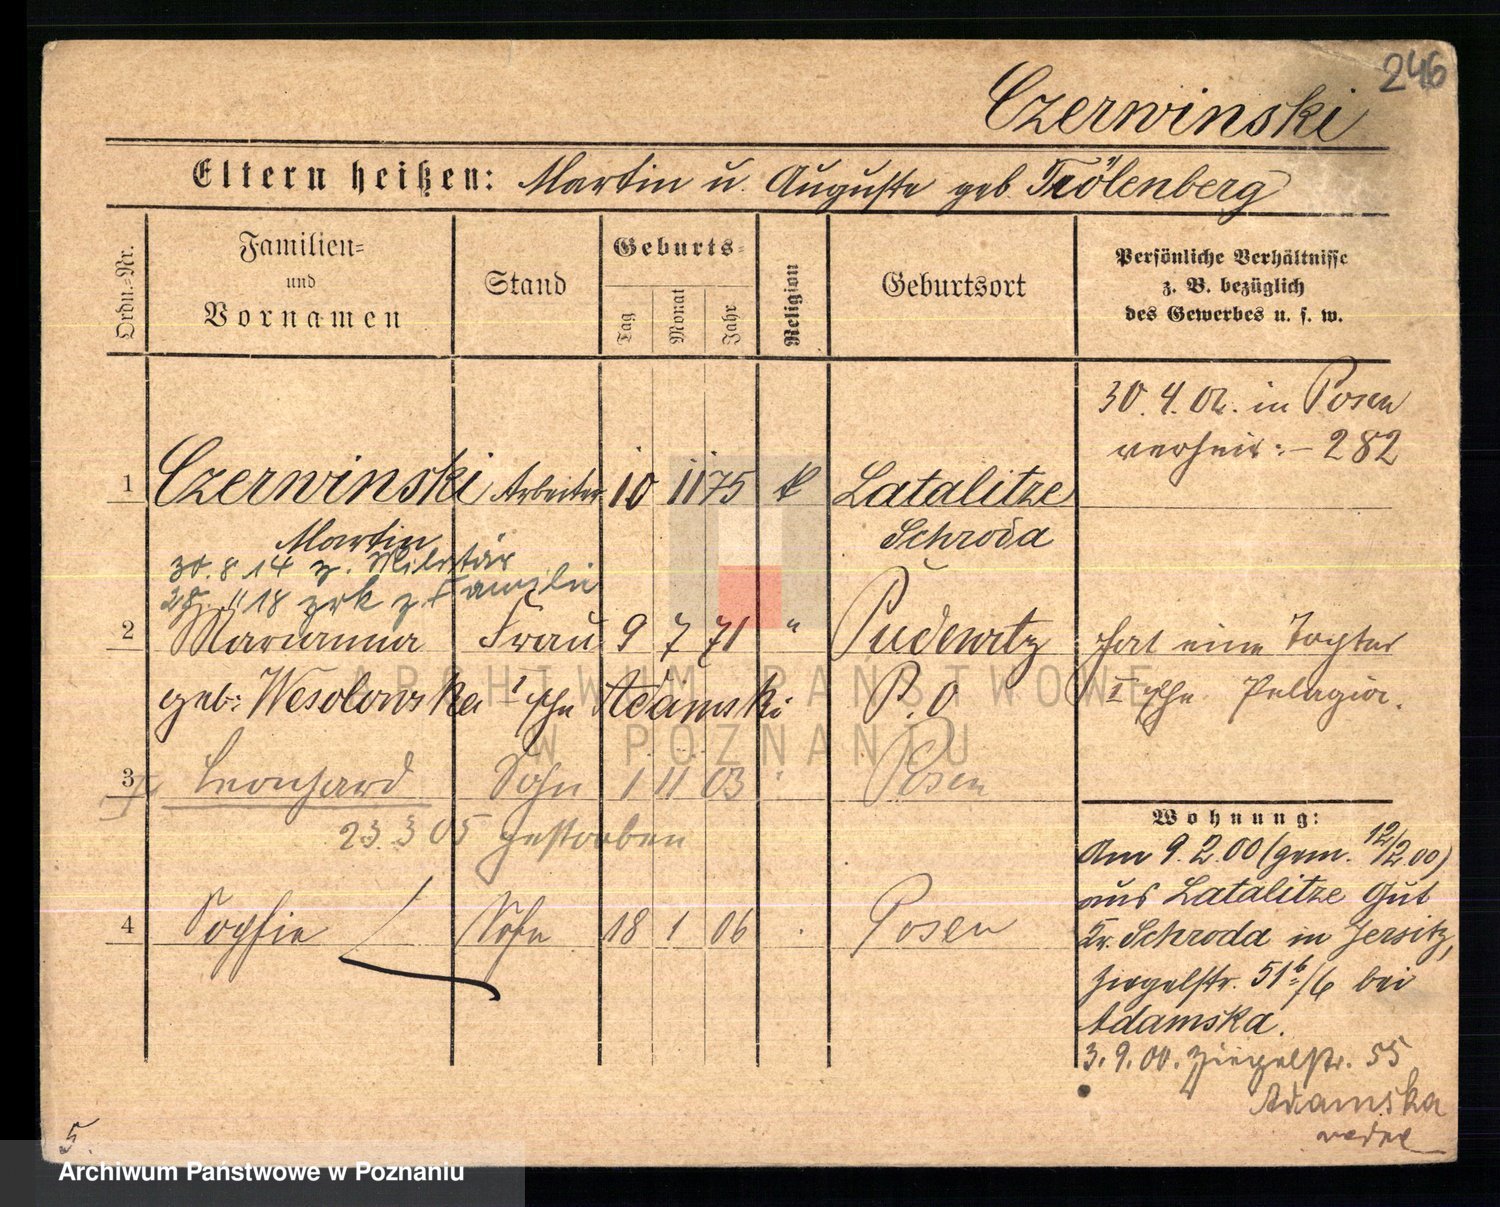 246
Czerwinski
Eltern heißen: Martin u. Auguste geb. Trölenberg
Ordn.-Nr.
Familien- und Vornamen
Stand
Geburts-
Tag
Monat
Jahr
Religion
Geburtsort
Persönliche Verhältnisse
z. B. bezüglich
des Gewerbes u. s. w.
30. 4. 02. in Posen
verheir: – 282
1 Czerwinski Arbeiter 10 11 75 k Latalitze
Martin Schroda
30. 8. 14 z. Militär
18 zrk z. Familie
2 Marianna Frau 9 7 71 " Pudewitz hat eine Tochter
geb: Wesolowska I Ehe Adamski P. O I Ehe Pelagia.
3 Leonhard Sohn 1 11 03 " Posen
23. 3 05 gestorben
4 Sophie 18 1 06 . Posen
Wohnung:
Am 9. 2. 00 (gem. 12/2 00)
aus Latalitze Gut
Kr. Schroda in Jersitz,
Ziegelstr. 51b/6 bei
Adamska.
3. 9. 00. Ziegelstr. 55
Adamska
5.
ARCHIWUM PAŃSTWOWE
W POZNANIU
Archiwum Państwowe w Poznaniu